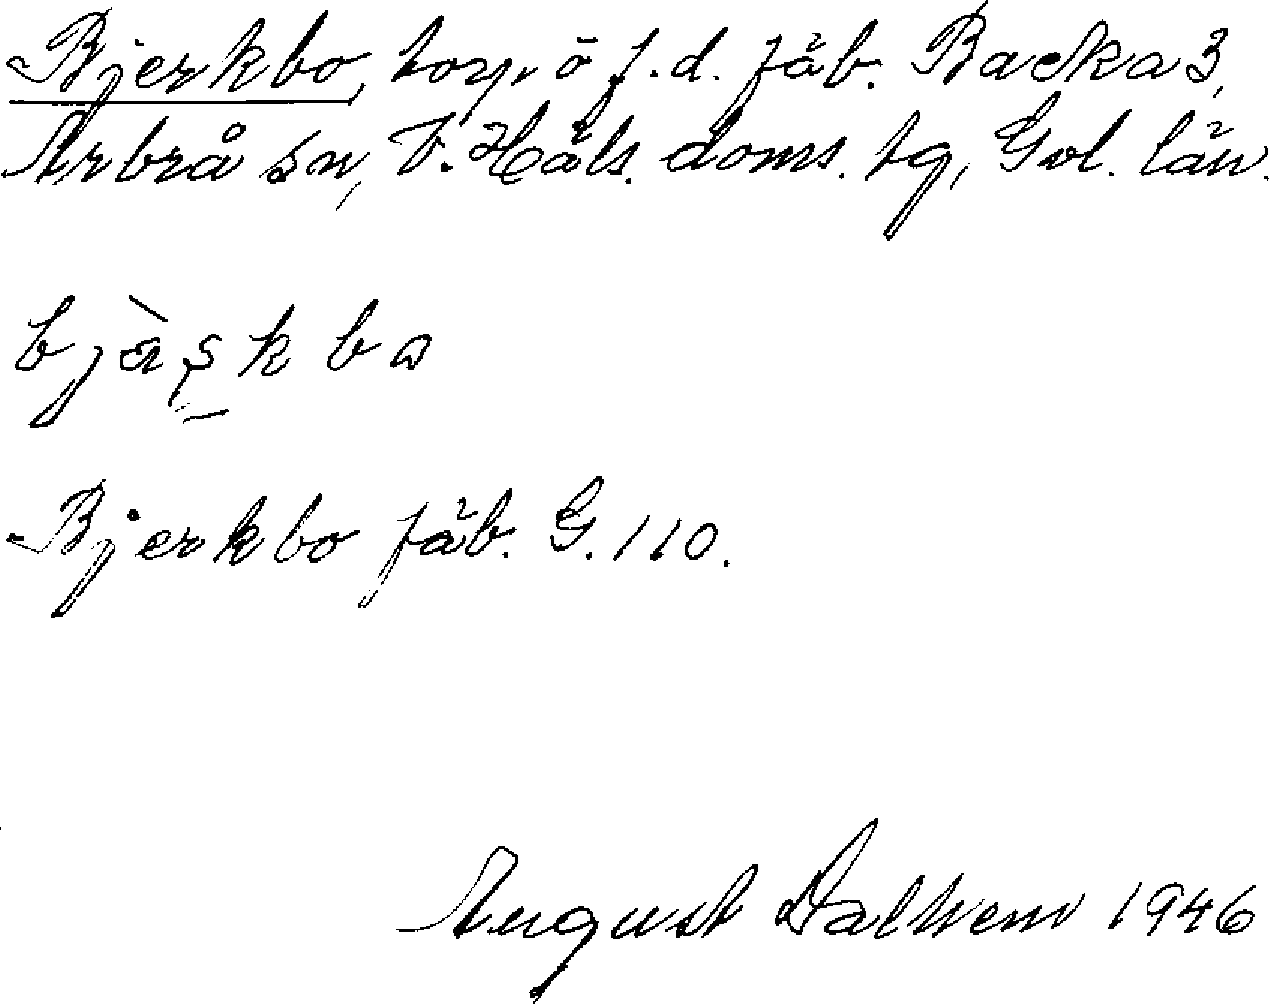 Bjerkbo, torp, o f.d. fäb. Backa 3,
Arbrå sn, V. Häls. doms. tg, Gvl. län.
bjàşkba
Bjerkbo fäb. G. 110.
August Dalhem 1946